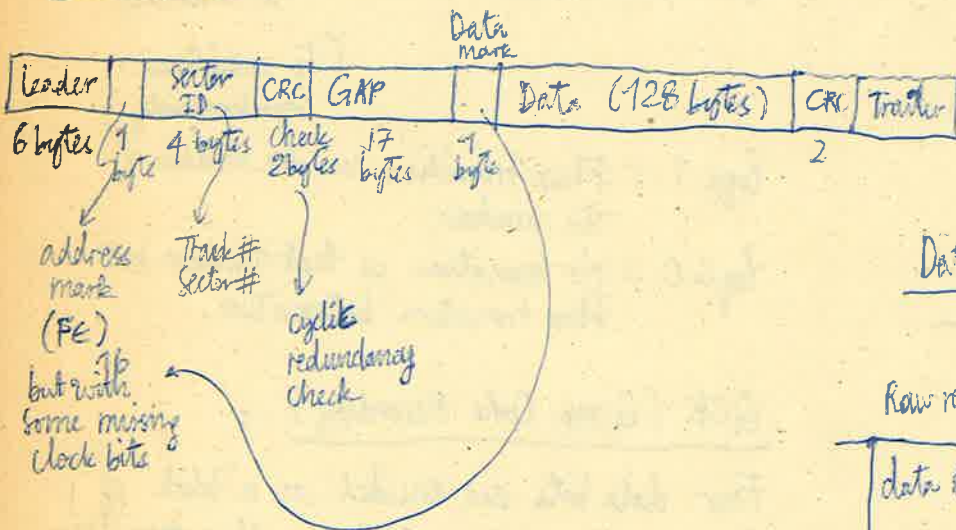 Data
mark
Leader
Sector
ID
CRC
GAP
Data (128 bytes)
CRC
Trailer
6 bytes
1
byte
4 bytes
check
2 bytes
17
bytes
1
byte
2
address
mark
(FE)
16
but with
some missing
clock bits
Track #
Sector #
cyclic
redundancy
check
Dat
Raw re
data s